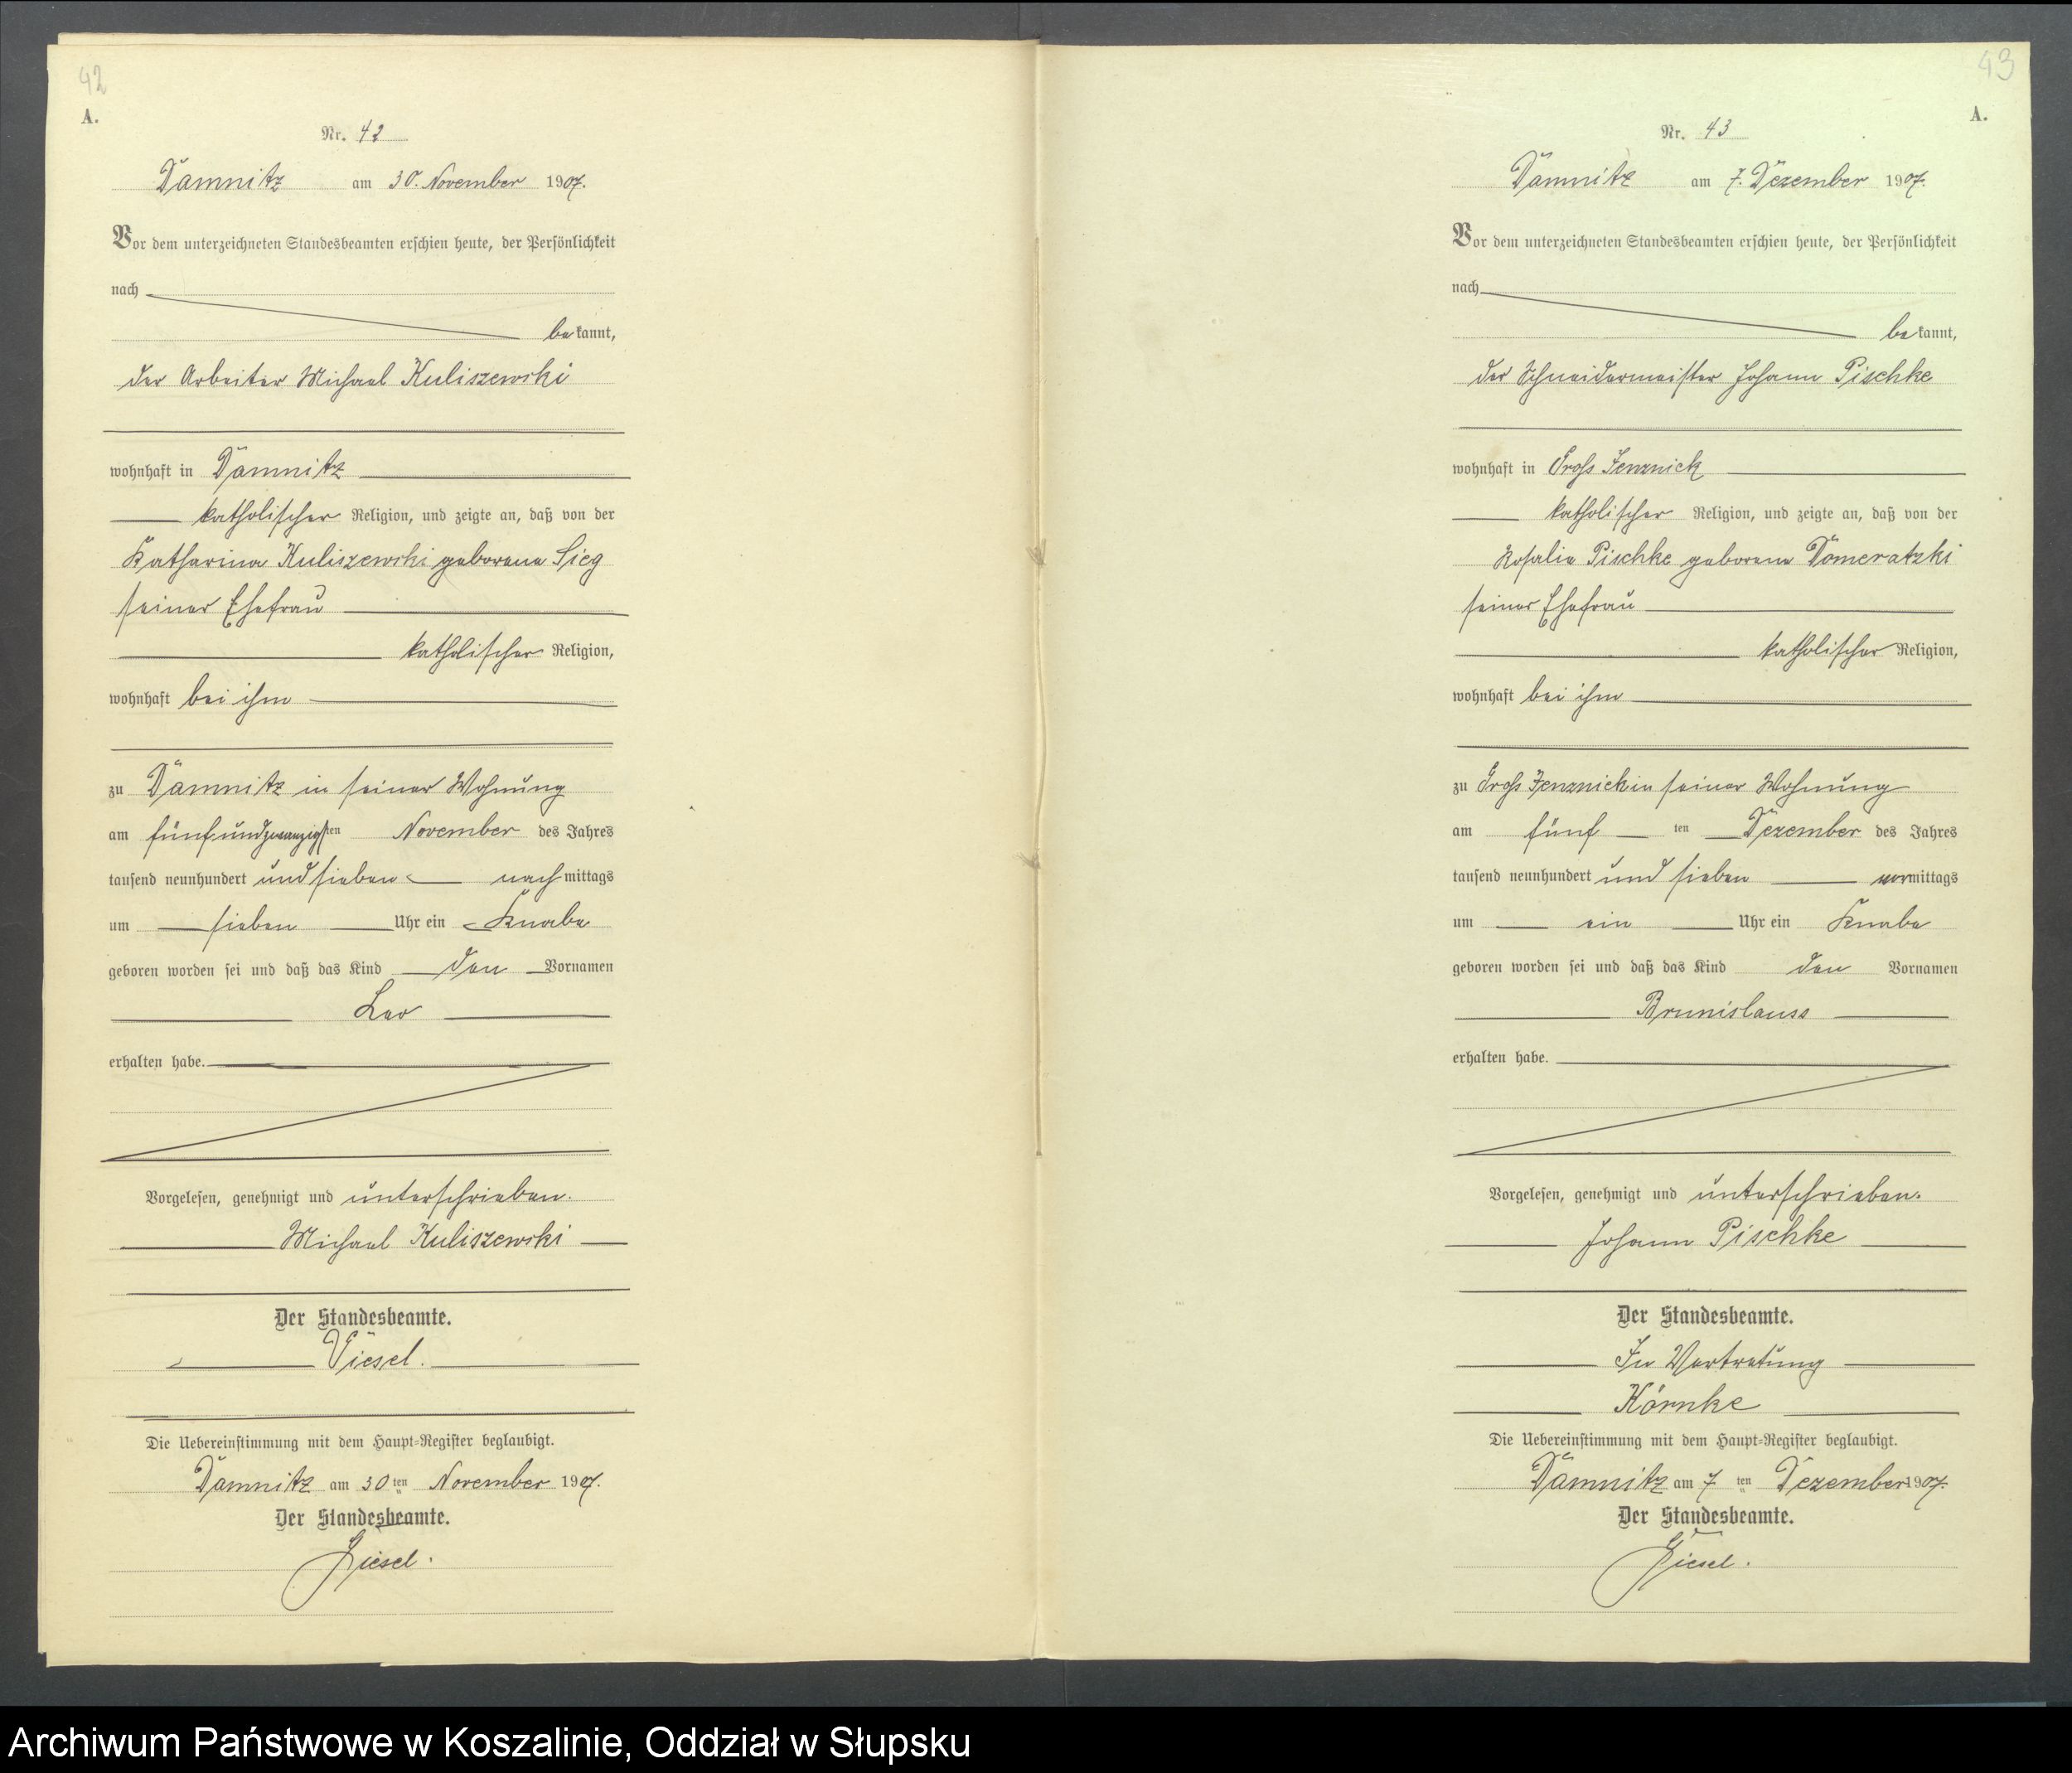 42
A.
Nr. 42
Damnitz am 30. November 1907.
Vor dem unterzeichneten Standesbeamten erschien heute, der Persönlichkeit
nach
bekannt,
der Arbeiter Michael Kuliszewski
wohnhaft in Damnitz
katholischer Religion, und zeigte an, daß von der
Katharina Kuliszewski geborene Sieg
seiner Ehefrau
katholischer Religion,
wohnhaft bei ihm
zu Damnitz in seiner Wohnung
am fünfundzwanzigsten November des Jahres
tausend neunhundert und sieben nachmittags
um sieben Uhr ein Knabe
geboren worden sei und daß das Kind den Vornamen
Leo
erhalten habe.
Vorgelesen, genehmigt und unterschrieben.
Michael Kuliszewski
Der Standesbeamte.
Giesel.
Die Uebereinstimmung mit dem Haupt-Register beglaubigt.
Damnitz am 30ten November 1907.
Der Standesbeamte.
Giesel.
43
A.
Nr. 43
Damnitz am 7. Dezember 1907.
Vor dem unterzeichneten Standesbeamten erschien heute, der Persönlichkeit
nach
bekannt,
der Schneidermeister Johann Pischke
wohnhaft in Groß Jenznick
katholischer Religion, und zeigte an, daß von der
Rosalie Pischke geborene Domeratzki
seiner Ehefrau
katholischer Religion,
wohnhaft bei ihm
zu Groß Jenznick in seiner Wohnung
am fünf ten Dezember des Jahres
tausend neunhundert und sieben vormittags
um ein Uhr ein Knabe
geboren worden sei und daß das Kind den Vornamen
Brunislauss
erhalten habe.
Vorgelesen, genehmigt und unterschrieben.
Johann Pischke
Der Standesbeamte.
In Vertretung
Körnke
Die Uebereinstimmung mit dem Haupt-Register beglaubigt.
Damnitz am 7ten Dezember 1907.
Der Standesbeamte.
Giesel.
Archiwum Państwowe w Koszalinie, Oddział w Słupsku